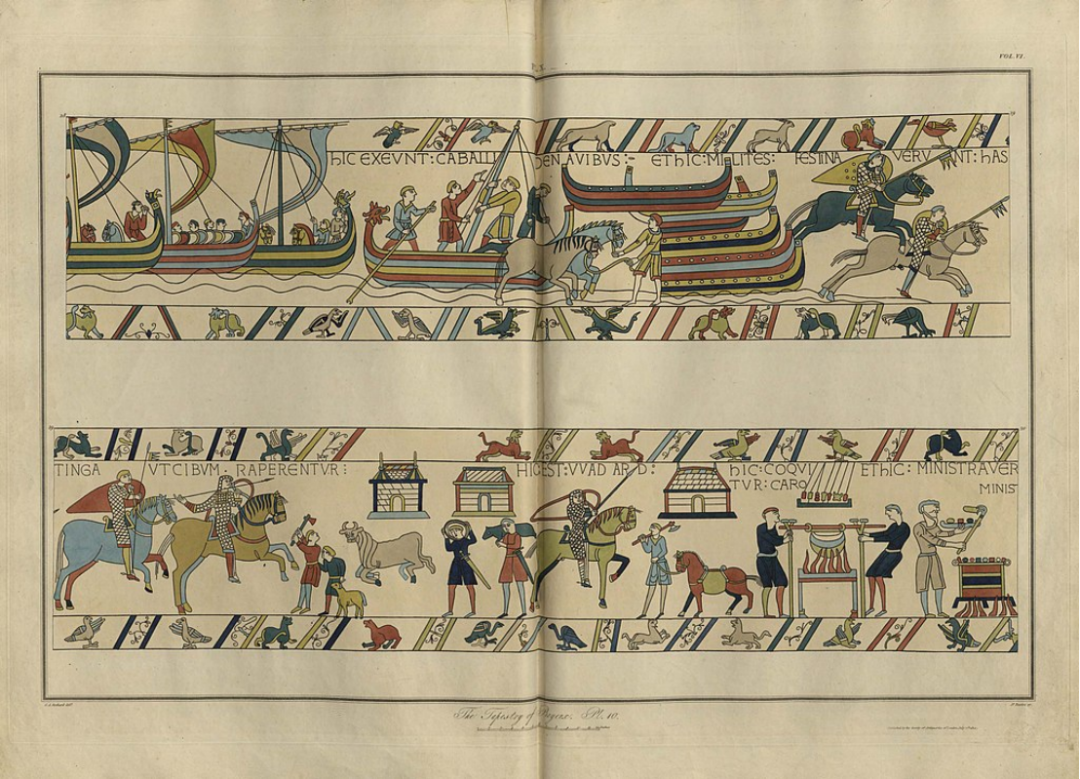 VOL. VI.
HIC EXEVNT: CABALLI DENAVIBVS:- ET hIC: MILITES: FESTINA VERVNT: hAS
TINGA VT CIBVM· RAPERENTVR: HIC EST: VVADARD: hIC: COQVI ET hIC: MINISTRAVER
TVR: CARO MINIS
The Tapestry of Bayeux. Pl. 10.